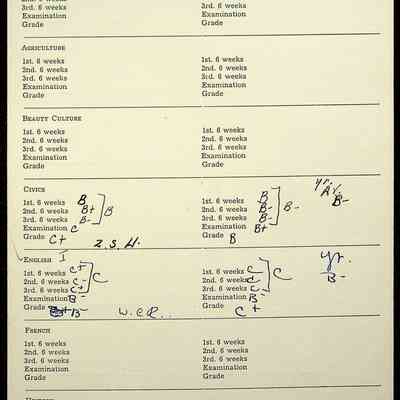 3rd. 6 weeks 3rd. 6 weeks
Examination Examination
Grade Grade
AGRICULTURE
1st. 6 weeks 1st. 6 weeks
2nd. 6 weeks 2nd. 6 weeks
3rd. 6 weeks 3rd. 6 weeks
Examination Examination
Grade Grade
BEAUTY CULTURE
1st. 6 weeks 1st. 6 weeks
2nd. 6 weeks 2nd. 6 weeks
3rd. 6 weeks 3rd. 6 weeks
Examination Examination
Grade Grade
CIVICS yr. Av.
1st. 6 weeks B 1st. 6 weeks B B-
2nd. 6 weeks B+ B 2nd. 6 weeks B- B-
3rd. 6 weeks B- 3rd. 6 weeks B-
Examination C Examination B+
Grade C+ Z.S.H. Grade B
ENGLISH I yr.
1st. 6 weeks C+ 1st. 6 weeks C B-
2nd. 6 weeks C- C 2nd. 6 weeks C C
3rd. 6 weeks C+ 3rd. 6 weeks C-
Examination B- Examination B-
Grade B- Grade C+
FRENCH
1st. 6 weeks 1st. 6 weeks
2nd. 6 weeks 2nd. 6 weeks
3rd. 6 weeks 3rd. 6 weeks
Examination Examination
Grade Grade